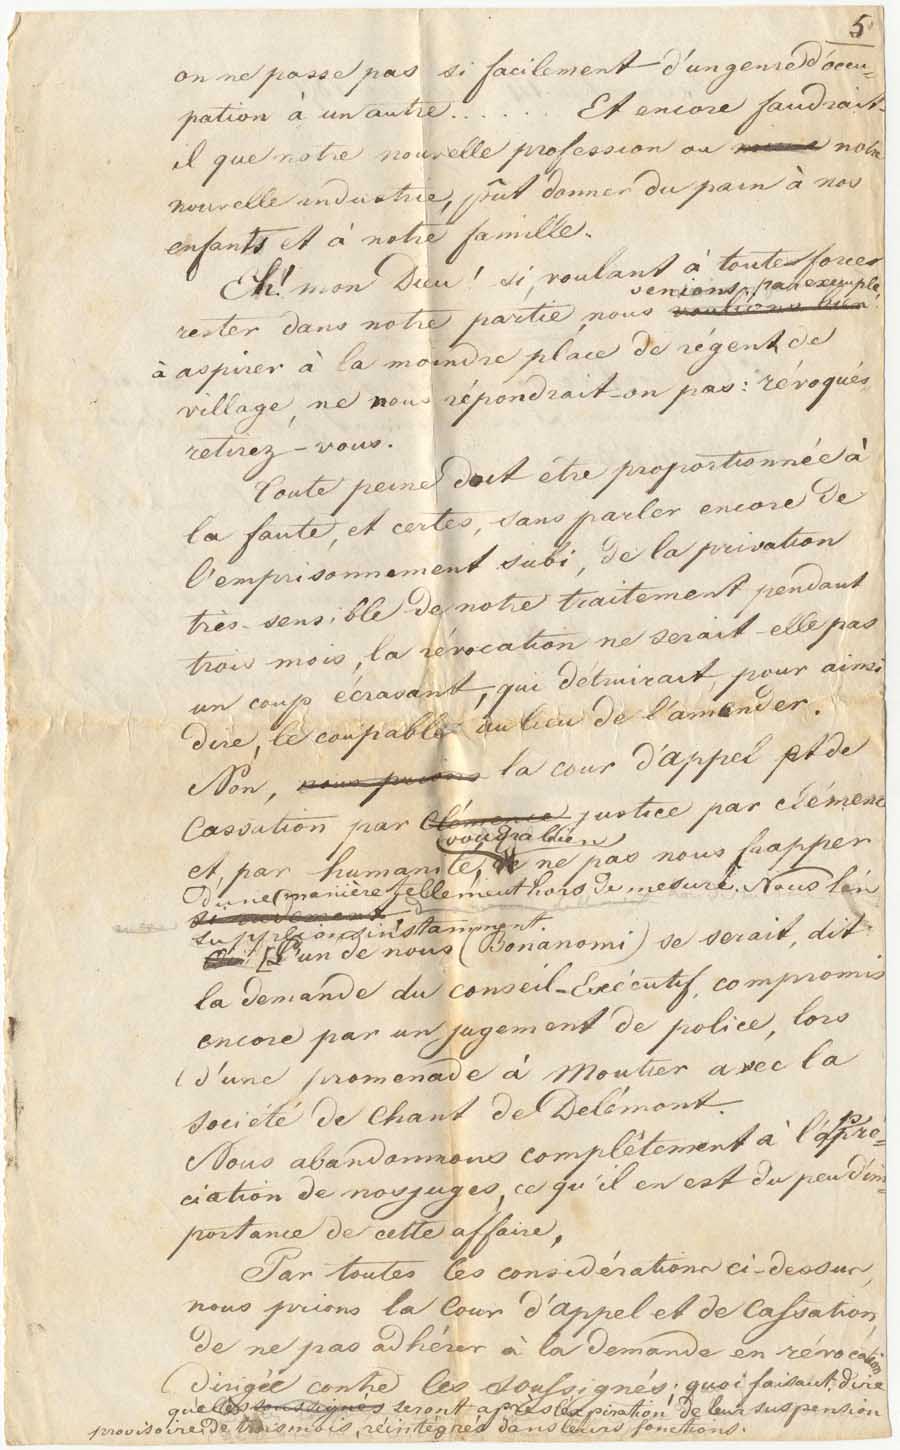 5
on ne passe pas si facilement d'un genre d'occu-
pation à un autre...... Et encore faudrait-
il que notre nouvelle profession ou notre
nouvelle industrie, pût donner du pain à nos
enfants et à notre famille.
Eh! mon Dieu! si, voulant à toutes forces
venions, par exemple
rester dans notre partie, nous voulions bien
à aspirer à la moindre place de régent de
village, ne nous répondrait-on pas: révoqués,
retirez-vous.
Toute peine doit être proportionnée à
la faute, et certes, sans parler encore de
l'emprisonnement subi, de la privation
très-sensible de notre traitement pendant
trois mois, la révocation ne serait-elle pas
un coup écrasant, qui détruirait, pour ainsi
dire, le coupable au lieu de l'amender.
Non, nous prions la cour d'appel et de
Cassation par clémence justice par clémence
voudra bien
et, par humanité, de ne pas nous frapper
d'une manière tellement hors de mesure. Nous l'en
si rudement
supplions instamment.
[L'un de nous (Bonanomi) se serait, dit
la demande du conseil-Exécutif, compromis
encore par un jugement de police, lors
d'une promenade à Moutier avec la
société de Chant de Delémont.
Nous abandonnons complètement à l'appré-
ciation de nos juges, ce qu'il en est du peu d'im-
portance de cette affaire.
Par toutes les considérations ci-dessus,
nous prions la Cour d'appel et de Cassation,
de ne pas adhérer à la demande en révocation
dirigée contre les soussignés; quoi faisant, dire
que les soussignés seront après l'expiration de leur suspension
provisoire de trois mois, réintégrés dans leurs fonctions.